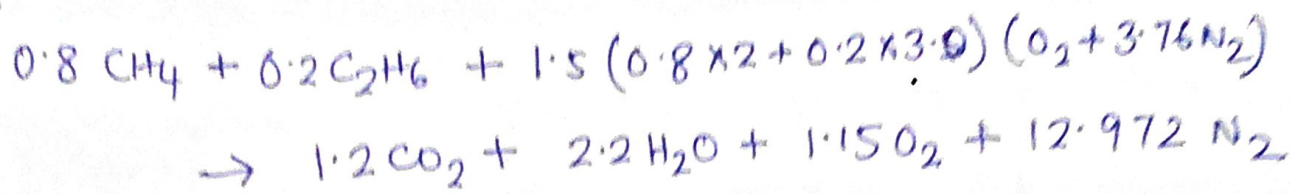 0.8 CH4 + 0.2 C2H6 + 1.5 (0.8 × 2 + 0.2 × 3.5) (O2 + 3.76 N2)
→ 1.2 CO2 + 2.2 H2O + 1.15 O2 + 12.972 N2